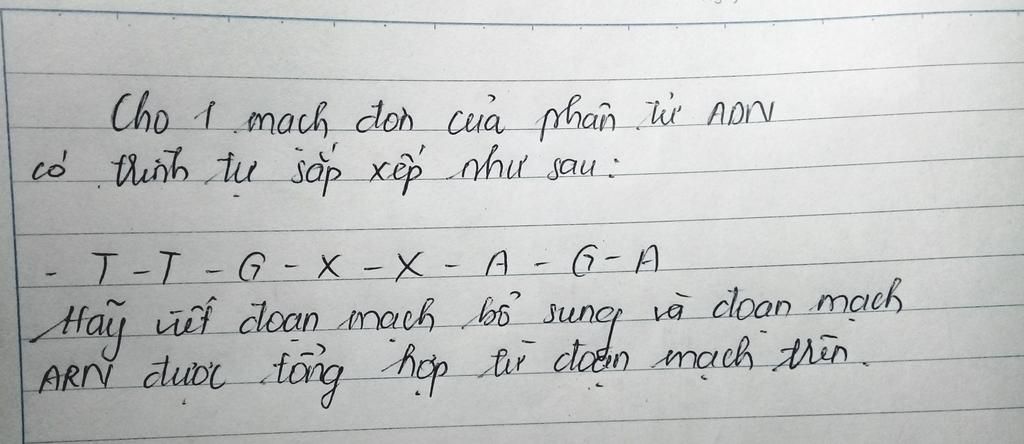 Cho 1 mạch đơn của phân tử ADN
có trình tự sắp xếp như sau:
- T - T - G - X - X - A - G - A
Hãy viết đoạn mạch bổ sung và đoạn mạch
ARN được tổng hợp từ đoạn mạch trên.